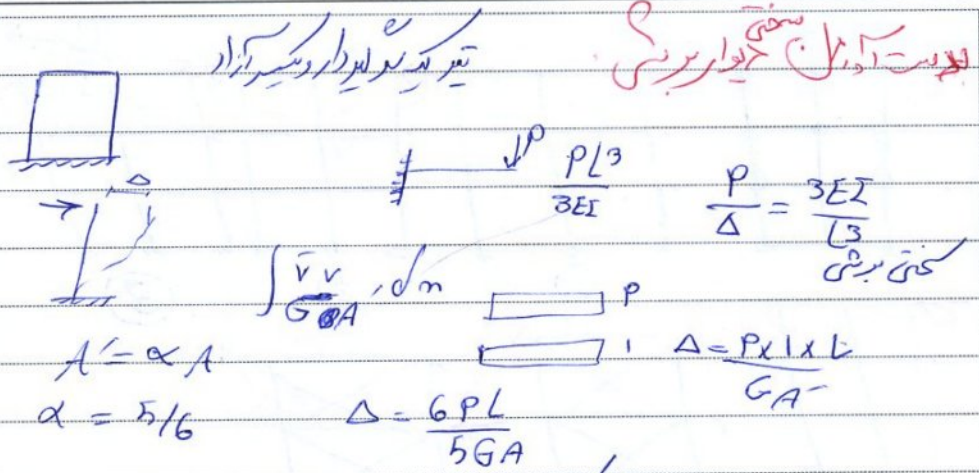 بدست آوردن سختی دیوار برشی
تیر یکسر گیردار و یکسر آزاد
Δ
P
PL3/3EI
P/Δ = 3EI/L3
سختی برشی
∫ v̄ v/GA' dn
P
1
A' = α A
Δ = P×1×L/GA'
α = 5/6
Δ = 6PL/5GA